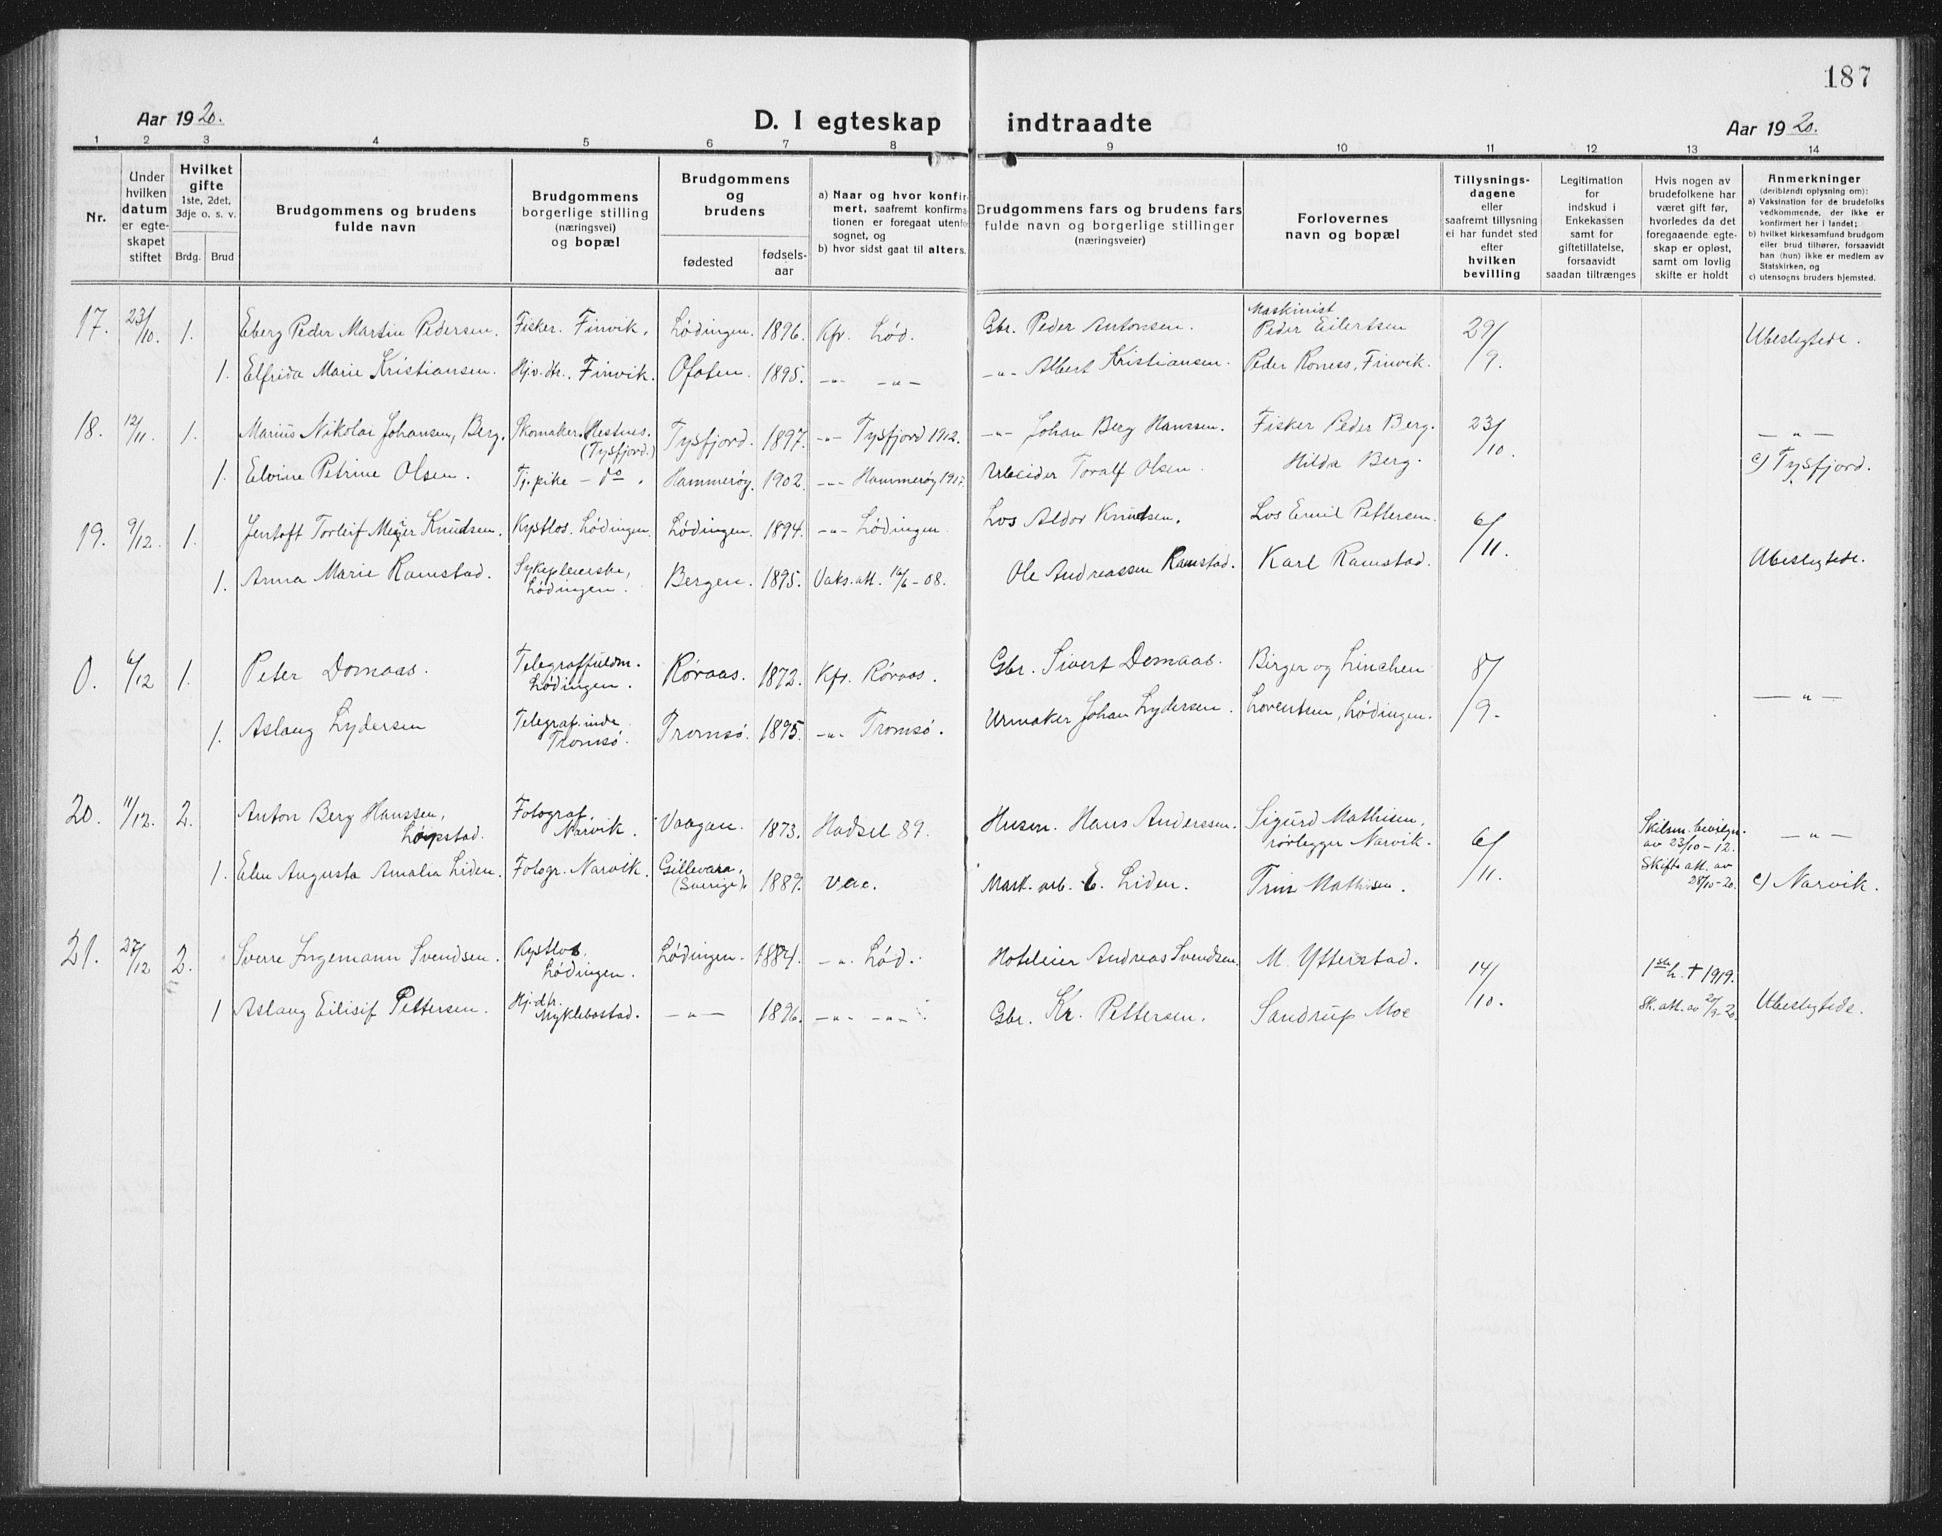 187
Aar 1920.
D. I egteskap indtraadte
Aar 1920.
1 2 3 4 5 6 7 8 9 10 11 12 13 14
Nr.
Under hvilken datum er egteskapet stiftet
Hvilket gifte 1ste, 2det, 3dje o. s. v.
Brdg. Brud
Brudgommens og brudens fulde navn
Brudgommens borgerlige stilling (næringsvei) og bopæl
Brudgommens og brudens
fødested
fødselsaar
a) Naar og hvor konfirmert, saafremt konfirmationen er foregaat utenfor sognet, og
b) hvor sidst gaat til alters.
Brudgommens fars og brudens fars fulde navn og borgerlige stillinger (næringsveier)
Forlovernes navn og bopæl
Tillysningsdagene eller saafremt tillysning ei har fundet sted efter hvilken bevilling
Legitimation for indskud i Enkekassen samt for giftetillatelse, forsaavidt saadan tiltrænges
Hvis nogen av brudefolkene har været gift før, hvorledes da det foregaaende egteskap er opløst, samt om lovlig skifte er holdt
Anmerkninger (deriblandt oplysning om):
a) Vaksination for de brudefolks vedkommende, der ikke er konfirmert her i landet;
b) hvilket kirkesamfund brudgom eller brud tilhører, forsaavidt han (hun) ikke er medlem av Statskirken, og
c) utensogns bruders hjemsted.
17. 23/10. 1. Eberg Peder Martin Pedersen. Fisker. Finvik. Lødingen. 1896. Kfr. Lød. Gbr. Peder Antonsen. Maskinist Peder Eilertsen 29/9. Ubeslegtede.
1. Elfrida Marie Kristiansen. Hjv. dtr. Finvik. Ofoten. 1895. -"- -"- -"- Albert Kristiansen. Peder Roness, Finvik.
18. 12/11. 1. Marius Nikolai Johansen, Berg. Skomaker. Hestnes. (Tysfjord.) Tysfjord. 1897. -"- Tysfjord 1912. -"- Johan Berg Hanssen. Fisker Peder Berg. 23/10. -"-
1. Elvine Petrine Olsen. Tj. pike - do. Hammerøy. 1902. -"- Hammerøy 1917. Arbeider Toralf Olsen. Hilda Berg. c) Tysfjord.
19. 9/12. 1. Jentoft Torleif Meyer Knudsen. Kystlos. Lødingen. Lødingen. 1894. -"- Lødingen. Los Aldor Knudsen. Los Emil Pettersen. 6/11.
1. Anna Marie Ramstad. Sykepleierske, Lødingen. Bergen. 1895. Vaks. att. 16/6 - 08. Ole Andreassen Ramstad. Karl Ramstad. Ubeslegtede.
0. 6/12 1. Peter Domaas. Telegraffuldm. Lødingen. Røraas. 1872. Kfr. Røraas. Gbr. Sivert Domaas. Birger og Linchen 8/9.
1. Aslaug Lydersen Telegrafinde Tromsø. Tromsø. 1895. -"- Tromsø. Urmaker Johan Lydersen. Loventsen, Lødingen. -"-
20. 11/12. 2. Anton Berg Hanssen, Løpstad. Fotograf, Narvik. Vaagan. 1873. Hadsel 89. Husm. Hans Anderssen. Sigurd Mathisen, rørlegger Narvik. 6/11. Skilsm. bevilgn. av 23/10 - 12. -"-
1. Elm Augusta Amalia Liden. Fotogr. Narvik. Gillevara, (Sverige). 1889. vac. Mask. arb. E. Liden. Trine Mathisen. Skifte att. av 28/10 - 20. c) Narvik.
21. 27/12 2. Sverre Ingemann Svendsen. Kystlos Lødingen. Lødingen. 1884. -"- Lød. Hoteleier Andreas Svendsen. M. Ytterstad. 14/10. 1ste h. † 1919.
1 Aslaug Eilisif Pettersen. Hj. dtr. Myklebostad. -"- 1896. -"- -"- Gbr. Kr. Pettersen. Sandrup Moe Sk. att. av 21/9 - 20. Ubeslegtede.